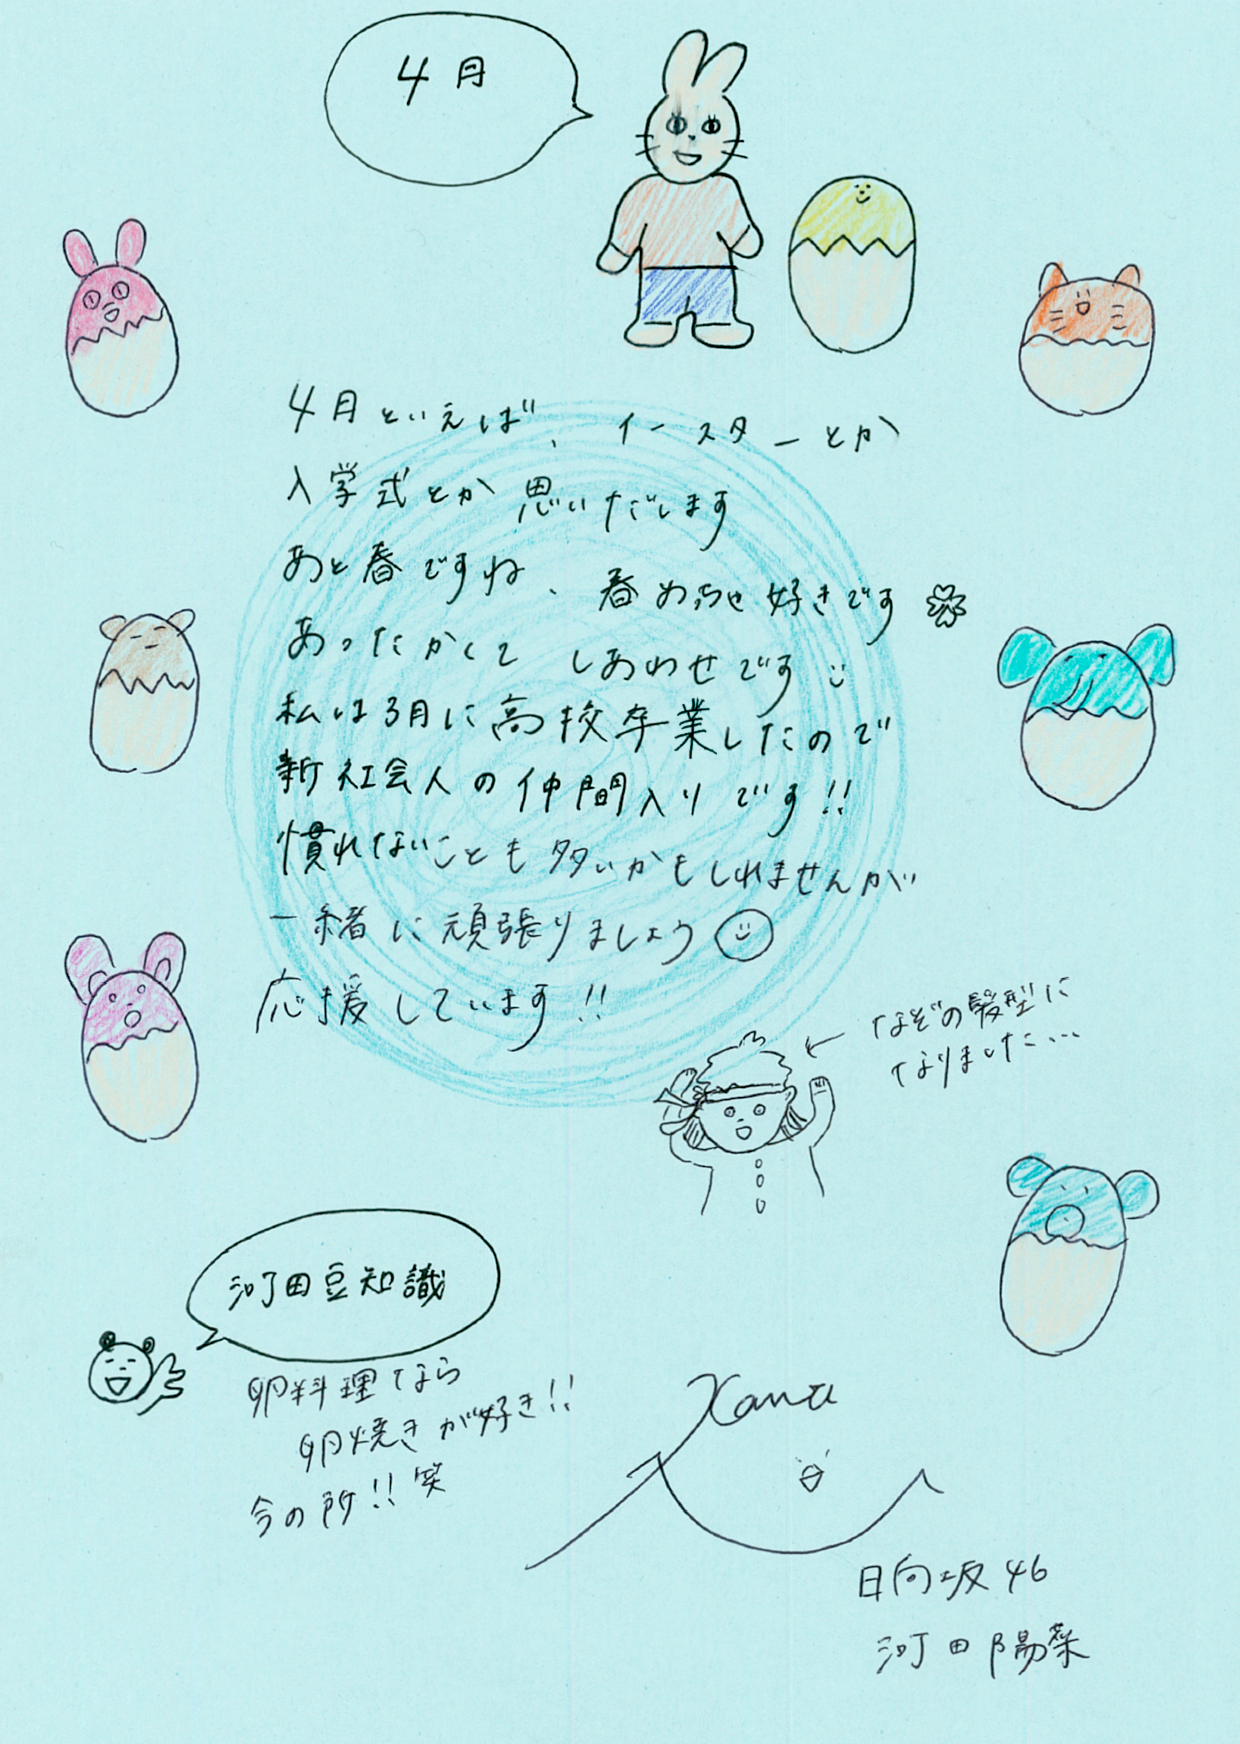 4月
4月といえば、イースターとか
入学式とか思いだします
あと春ですね、春めっちゃ好きです
あったかくて しあわせです
私は3月に高校卒業したので
新社会人の仲間入りです!!
慣れないことも多いかもしれませんが
一緒に頑張りましょう
応援しています!!
なぞの髪型に
なりました...
河田豆知識
卵料理なら
卵焼きが好き!!
今の所!!笑
Kana
日向坂46
河田陽菜